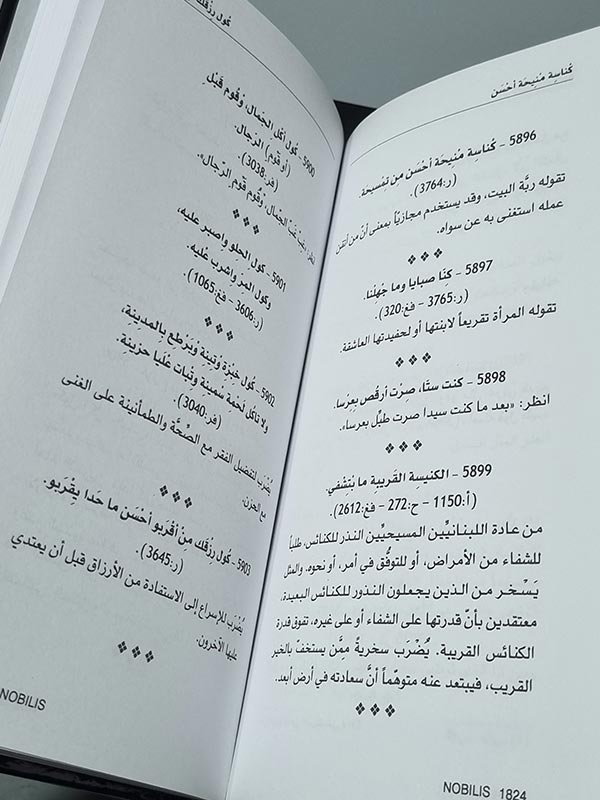 كُناسِة مْنِيحَة أحْسَن
5896 - كُناسِة مْنِيحَة أحْسَن مِن تمْسيحَة.
(ر:3764).
تقوله ربّة البيت، وقد يستخدم مجازياً بمعنى أنّ من أتقن
عمله استغنى به عن سواه.
5897 - كِنّا صبايا وما جْهلْنا.
(ر:3765 - فغ:320).
تقوله المرأة تقريعاً لابنتها أو لحفيدتها العاشقة.
5898 - كنت ستّا، صِرْت أرقُص بِعِرسا.
انظر: «بعد ما كنت سيدا صرت طبِّل بعرسا».
5899 - الكنيسة القَريبِة ما بْتِشْفي.
(أ:1150 - ح:272 - فغ:2612).
من عادة اللبنانيِّين المسيحيِّين النذر للكنائس، طلباً
للشفاء من الأمراض، أو للتوفُّق في أمر، أو نحوه. والمثل
يَسْخر من الذين يجعلون النذور للكنائس البعيدة،
معتقدين بأنّ قدرتها على الشفاء أو على غيره، تفوق قدرة
الكنائس القريبة. يُضْرَب سخريةً ممَّن يستخفّ بالخير
القريب، فيبتعد عنه متوهّماً أنَّ سعادته في أرض أبعد.
NOBILIS 1824
كُول رِزْقك
5900 - كول أكْل الجْمال، وْقُوم قَبْل
(أو قَوم) الرّجال.
(فر:3038).
الجْمال، وْقُوم قَوم الرجال».
5901 - كولِ الحلو واصبر عليه،
وكول المِرّ واشرب عْليه.
(ر:3606 - فغ:1065).
5902 - كول خبْزة وْتِينِة وْبَرْطِع بِالمدينِة،
ولا تاكل لَحْمة سْمِينِة وتْبات عْلَيا حزينِة.
(فر:3040).
يُضْرَب لتفضيل الفقر مع الصِّحَّة والطمأنينة على الغنى
مع الحزن.
5903 - كُول رِزْقك مِنْ أقْربو أحْسَن ما حَدا يِقْرَبو.
(ر:3645).
يُضْرَب للإسراع إلى الاستفادة من الأرزاق قبل أن يعتدي
عليها الآخرون.
NOBILIS